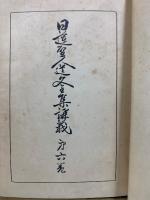 日蓮聖人遺文全集講義
第六巻